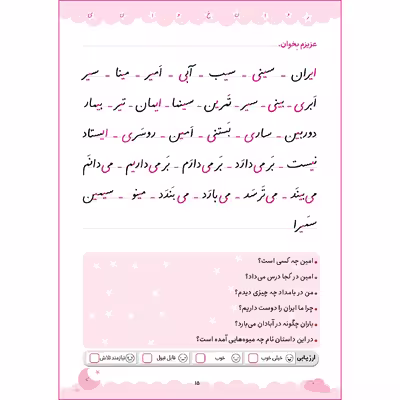 روان‌خوانی
عزیزم بخوان.
ایران – سینی – سیب – آبی – اَمیر – مینا – سیر
اَبری – بینی – سیر – تَمرین – سینما – ایمان – تیر – بیمار
دوربین – ساری – بَستنی – اَمین – روسَری – ایستاد
نیست – بَرمی‌دارَد – بَرمی‌دارَم – بَرمی‌داریم – می‌دانَم
می‌بینَد – می‌تَرسَد – می‌بارَد – می‌بَندَد – مینو – سیمین
سَمیرا
امین چه کسی است؟
امین در کجا درس می‌داد؟
من در بامداد چه چیزی دیدم؟
چرا ما ایران را دوست داریم؟
باران چگونه در آبادان می‌بارد؟
در این داستان نام چه میوه‌هایی آمده است؟
ارزیابی خیلی خوب خوب قابل قبول نیازمند تلاش
۱۵